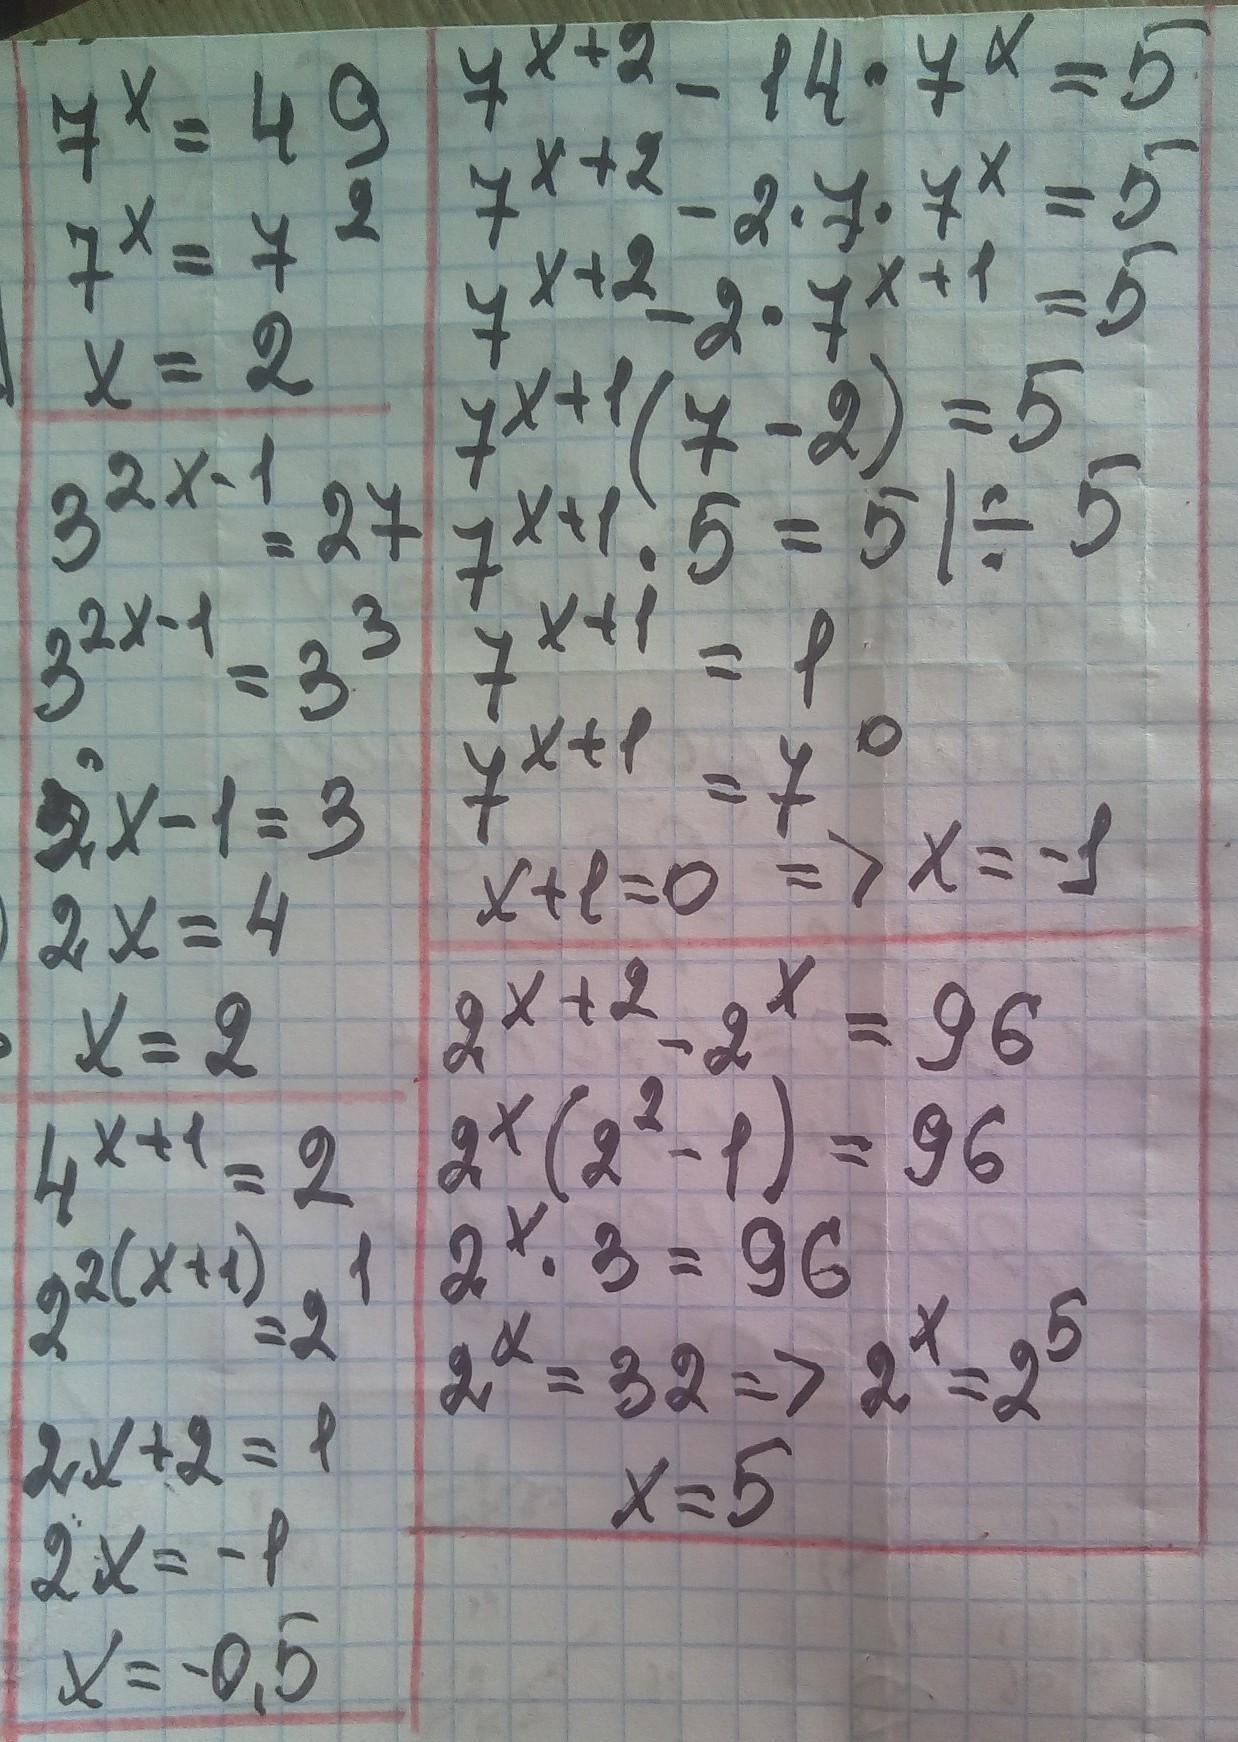 7^x = 49
7^x = 7^2
x = 2
3^{2x-1} = 27
3^{2x-1} = 3^3
2x-1 = 3
2x = 4
x = 2
4^{x+1} = 2
2^{2(x+1)} = 2^1
2x+2 = 1
2x = -1
x = -0,5
7^{x+2} - 14 · 7^x = 5
7^{x+2} - 2 · 7 · 7^x = 5
7^{x+2} - 2 · 7^{x+1} = 5
7^{x+1} (7 - 2) = 5
7^{x+1} · 5 = 5 | ÷ 5
7^{x+1} = 1
7^{x+1} = 7^0
x+1=0 => x = -1
2^{x+2} - 2^x = 96
2^x (2^2 - 1) = 96
2^x · 3 = 96
2^x = 32 => 2^x = 2^5
x = 5